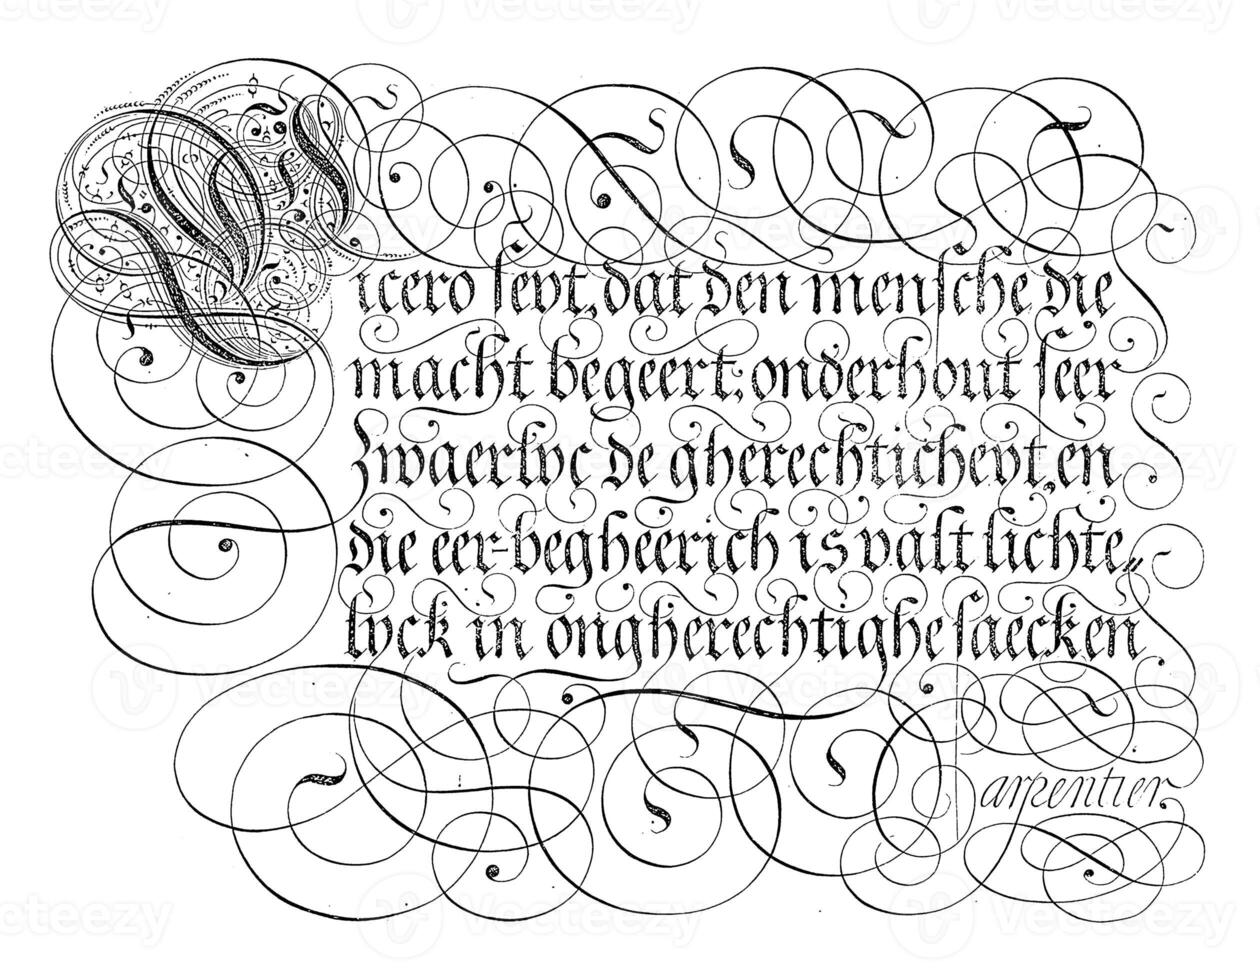 Cicero seyt, dat den mensche die
macht begeert: onderhout seer
Zwaerlyc de gherechticheyt, en
die eer-begheerich is valt lichte„
lyck in ongherechtighe saecken
Carpentier